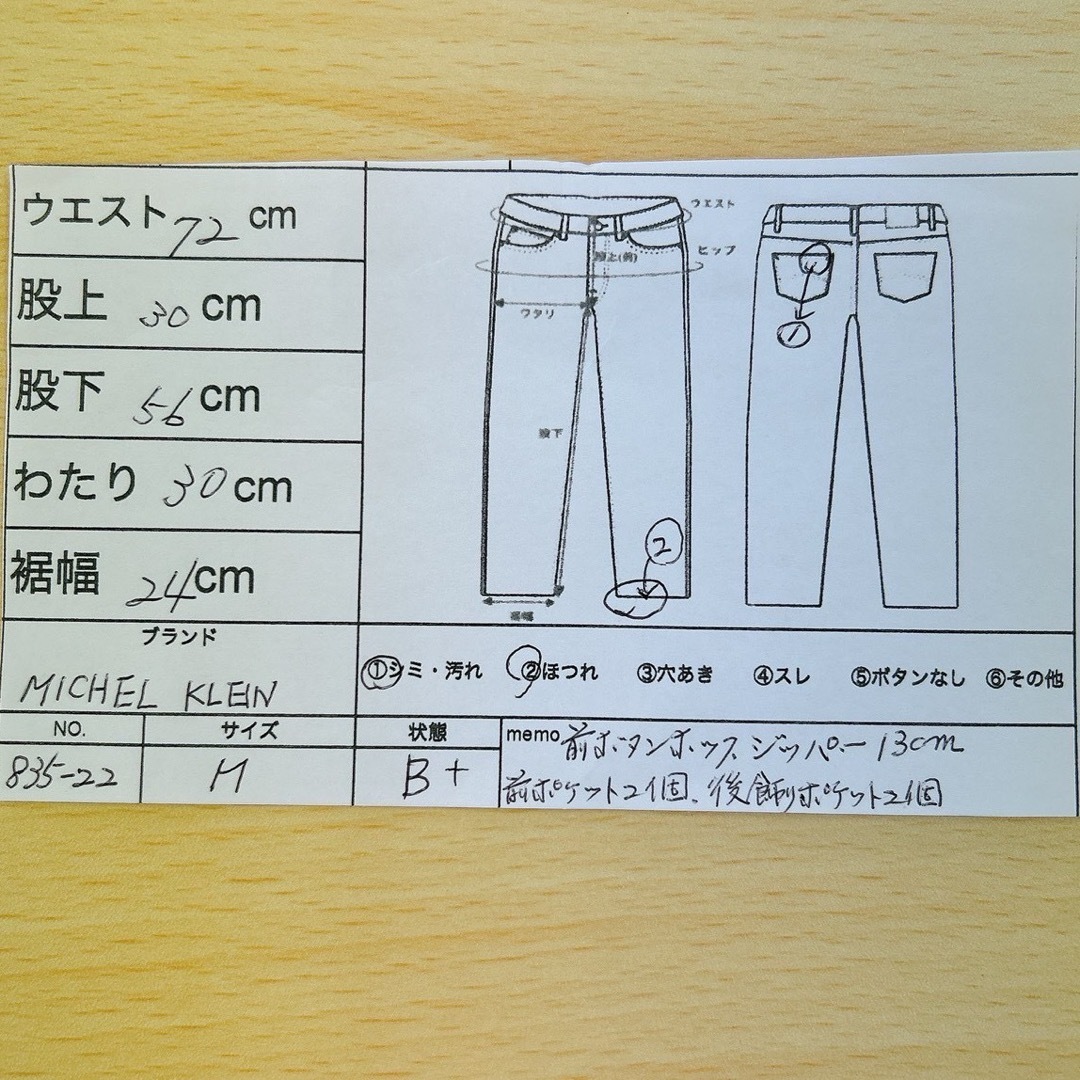 ウエスト 72 cm
股上 30 cm
股下 56 cm
わたり 30 cm
裾幅 24 cm
ブランド
MICHEL KLEIN
NO.
835-22
サイズ
M
状態
B+
ウエスト
ヒップ
股上(前)
ワタリ
股下
裾幅
2
1
①シミ・汚れ ②ほつれ ③穴あき ④スレ ⑤ボタンなし ⑥その他
memo 前ボタンホック、ジッパー13cm
前ポケット2個、後飾りポケット2個